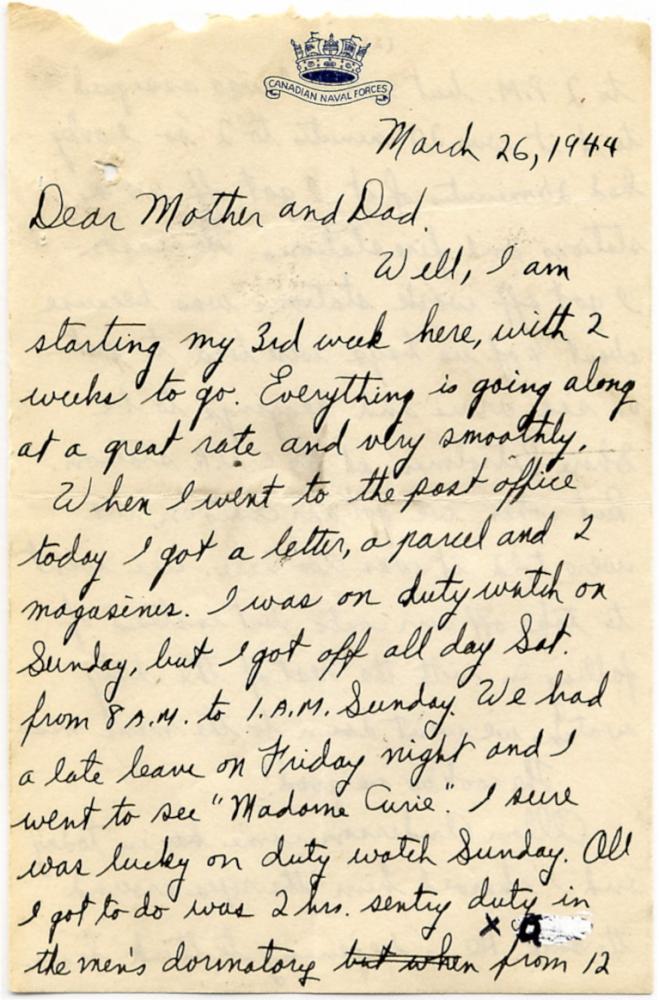 CANADIAN NAVAL FORCES
March 26, 1944
Dear Mother and Dad.
Well, I am
starting my 3rd week here, with 2
weeks to go. Everything is going along
at a great rate and very smoothly.
When I went to the post office
today I got a letter, a parcel and 2
magasines. I was on duty watch on
Sunday, but I got off all day Sat.
from 8 A.M. to 1.A.M. Sunday. We had
a late leave on Friday night and I
went to see "Madame Curie". I sure
was lucky on duty watch Sunday. All
I got to do was 2 hrs. sentry duty in
x a
the men's dormatory but when from 12